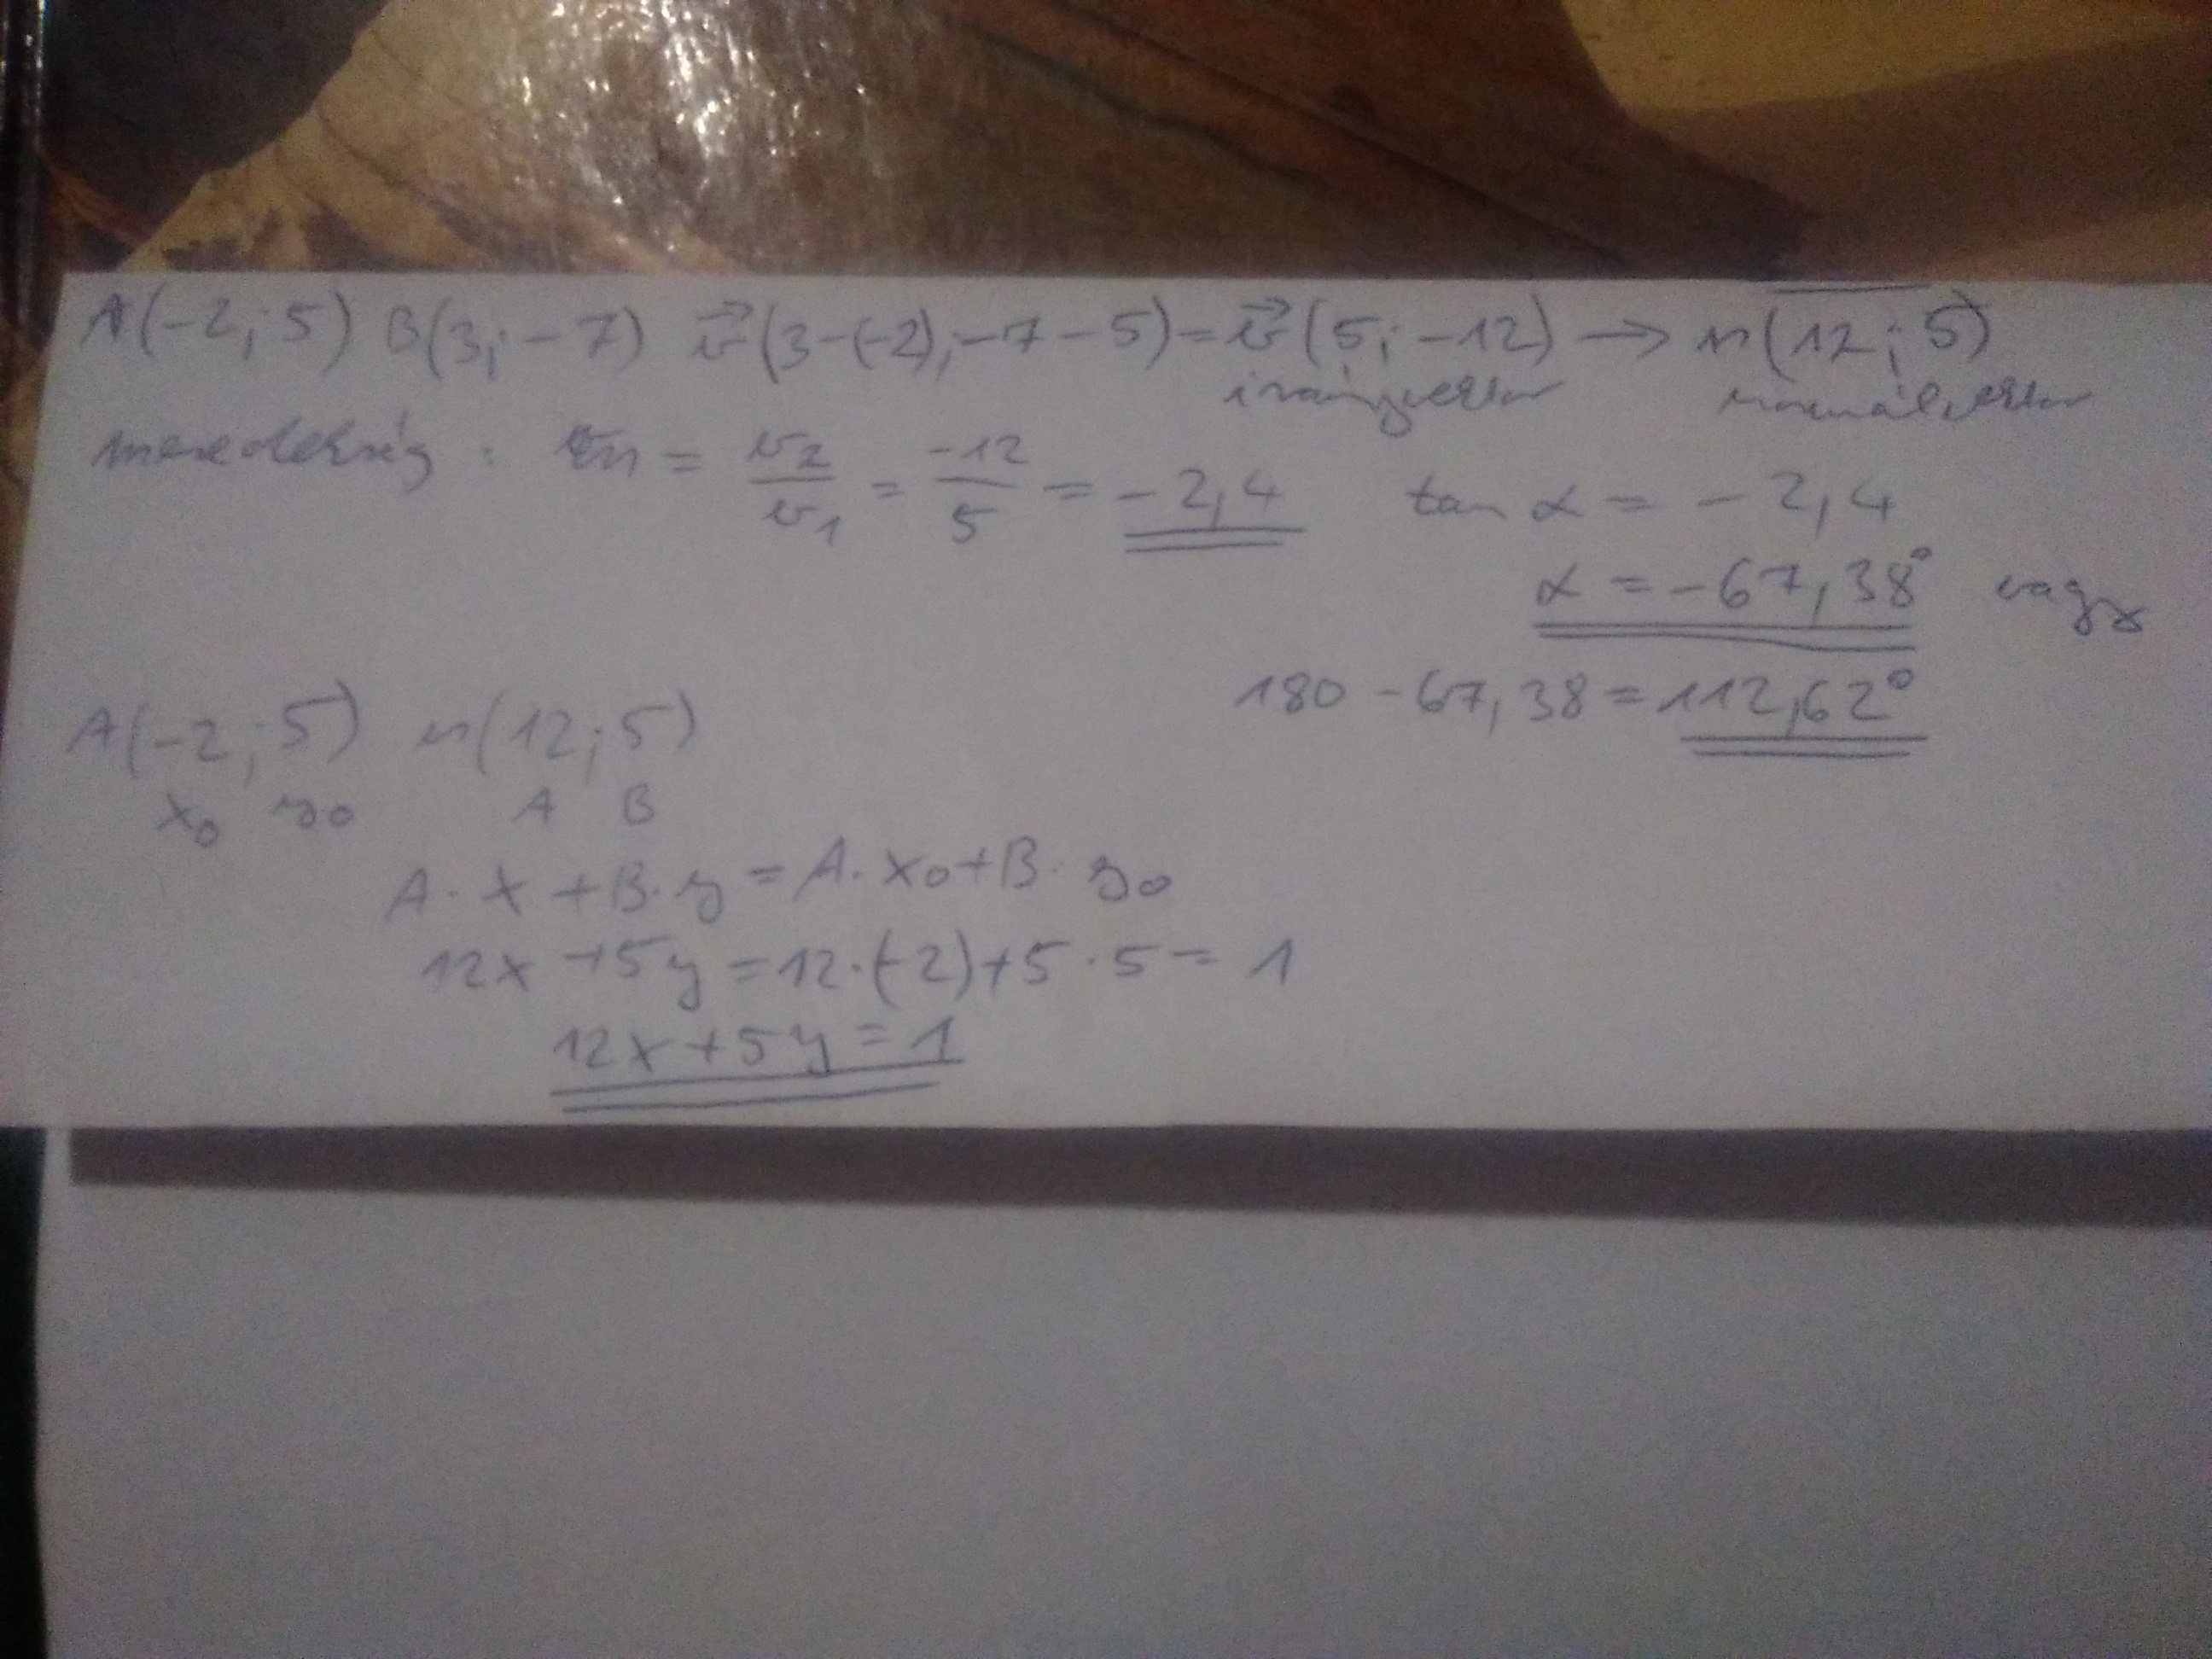 A(-2; 5) B(3; -7) v⃗(3-(-2); -7-5) = v⃗(5; -12) → n(12; 5)
irányvektor normálvektor
meredekség: m = v₂/v₁ = -12/5 = -2,4 tan α = -2,4
α = -67,38° vagy
180 - 67,38 = 112,62°
A(-2; 5) n(12; 5)
x₀ y₀ A B
A·x + B·y = A·x₀ + B·y₀
12x + 5y = 12·(-2) + 5·5 = 1
12x + 5y = 1